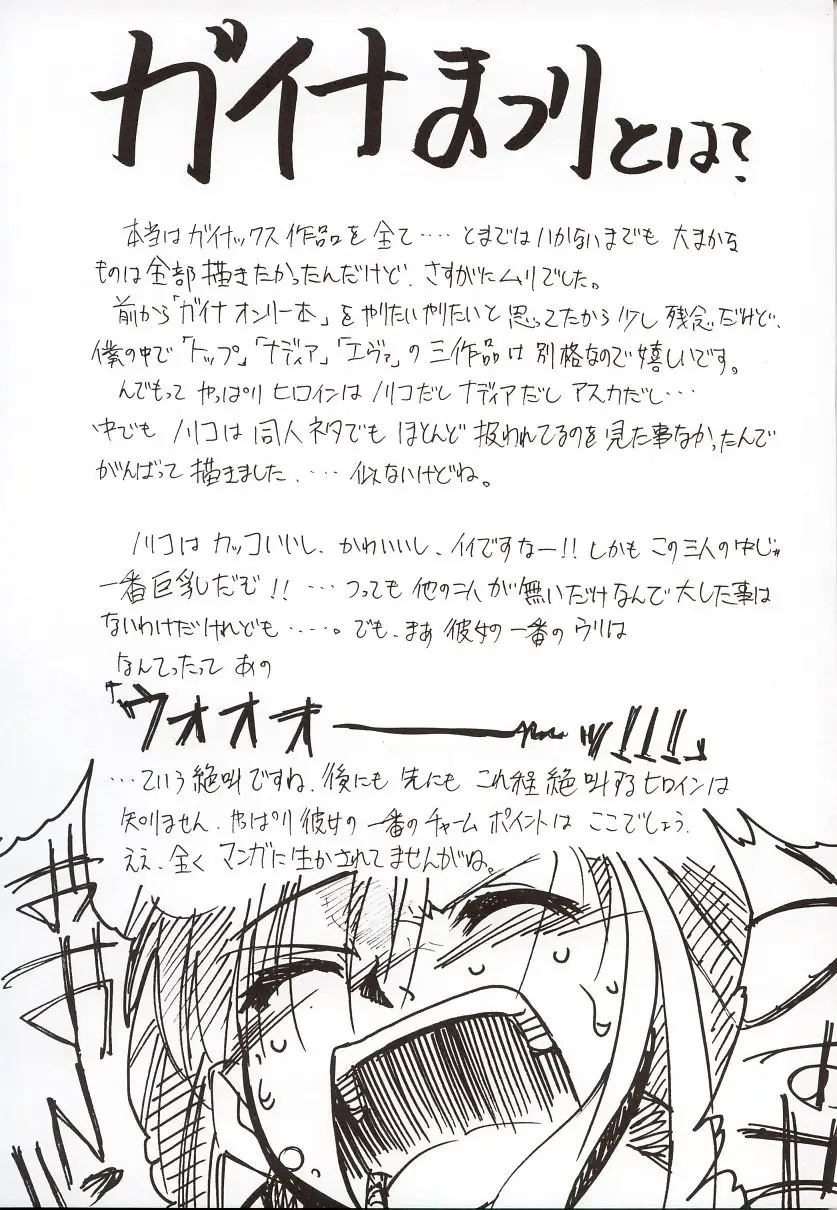 ガイナまつりとは?
本当はガイナックス作品を全て‥‥とまではいかないまでも 大まかな
ものは全部描きたかったんだけど、さすがにムリでした。
前から「ガイナオンリー本」をやりたいやりたいと思ってたから少し残念だけど、
僕の中で「トップ」「ナディア」「エヴァ」の三作品は別格なので嬉しいです。
んでもって やっぱりヒロインは ノリコだし ナディアだし アスカだし…
中でも ノリコは 同人ネタでも ほとんど 扱われてるのを 見た事なかったんで
がんばって 描きました.‥‥ 似ないけどね。
ノリコは カッコいいし、かわいいし、イイですなー!! しかも この三人の中じゃ
一番巨乳だぞ!! …つっても 他の二人が 無いだけなんで 大した事は
ないわけだけれども‥‥‥。でも、まあ 彼女の 一番の ウリは
なんてったって あの
「ウオオオ――――ッ!!!」
…ていう 絶叫ですね、後にも 先にも これ程 絶叫する ヒロインは
知りません、やっぱり 彼女の 一番の チャーム ポイントは ここでしょう、
ええ、全く マンガに 生かされてませんがね。